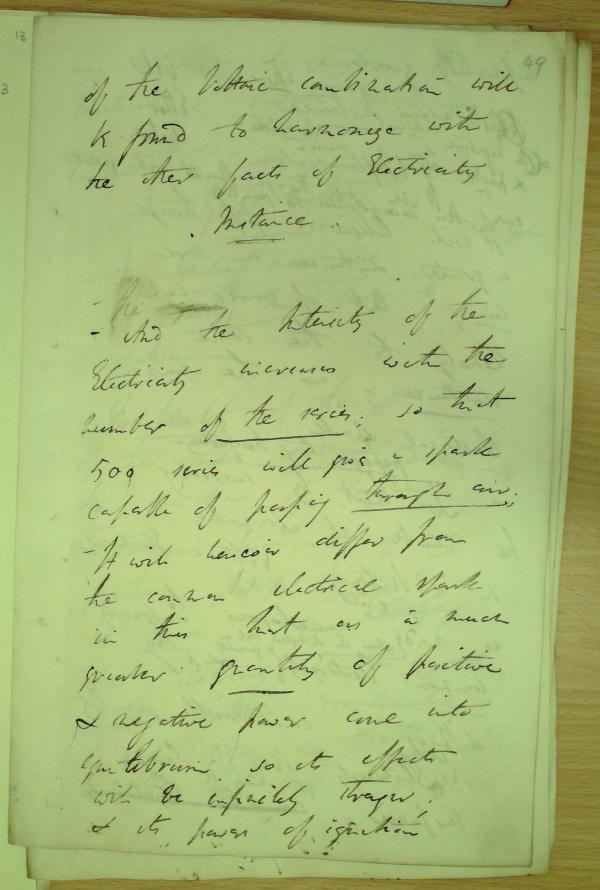 49
of the Voltaic combination will
be found to harmonize with
the other facts of Electricity
Instance.
- The
- And the Intensity of the
Electricity increases with the
number of the series; so that
500 series will give a spark
capable of passing through air;
- It will however differ from
the common electrical spark
in this that as a much
greater quantity of positive
& negative power come into
equilibrium so its effects
will be infinitely stronger;
& its power of ignition
13
3